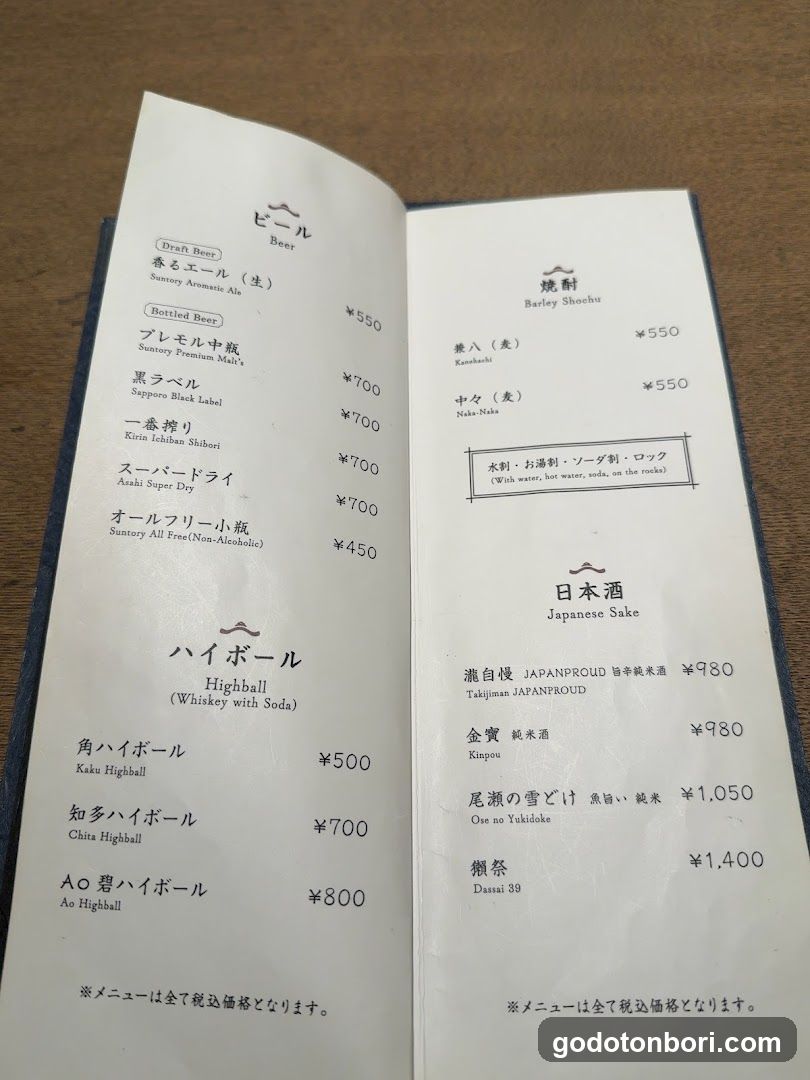 ビール
Beer
Draft Beer
香るエール（生）
Suntory Aromatic Ale
¥550
Bottled Beer
プレモル中瓶
Suntory Premium Malt's
¥700
黒ラベル
Sapporo Black Label
¥700
一番搾り
Kirin Ichiban Shibori
¥700
スーパードライ
Asahi Super Dry
¥700
オールフリー小瓶
Suntory All Free(Non-Alcoholic)
¥450
ハイボール
Highball
(Whiskey with Soda)
角ハイボール
Kaku Highball
¥500
知多ハイボール
Chita Highball
¥700
AO 碧ハイボール
Ao Highball
¥800
※メニューは全て税込価格となります。
焼酎
Barley Shochu
兼八（麦）
Kanehachi
¥550
中々（麦）
Naka-Naka
¥550
水割・お湯割・ソーダ割・ロック
(With water, hot water, soda, on the rocks)
日本酒
Japanese Sake
瀧自慢 JAPANPROUD 旨辛純米酒 ¥980
Takijiman JAPANPROUD
金寶 純米酒 ¥980
Kinpou
尾瀬の雪どけ 魚旨い 純米 ¥1,050
Ose no Yukidoke
獺祭 ¥1,400
Dassai 39
※メニューは全て税込価格となります。
godotonbori.com